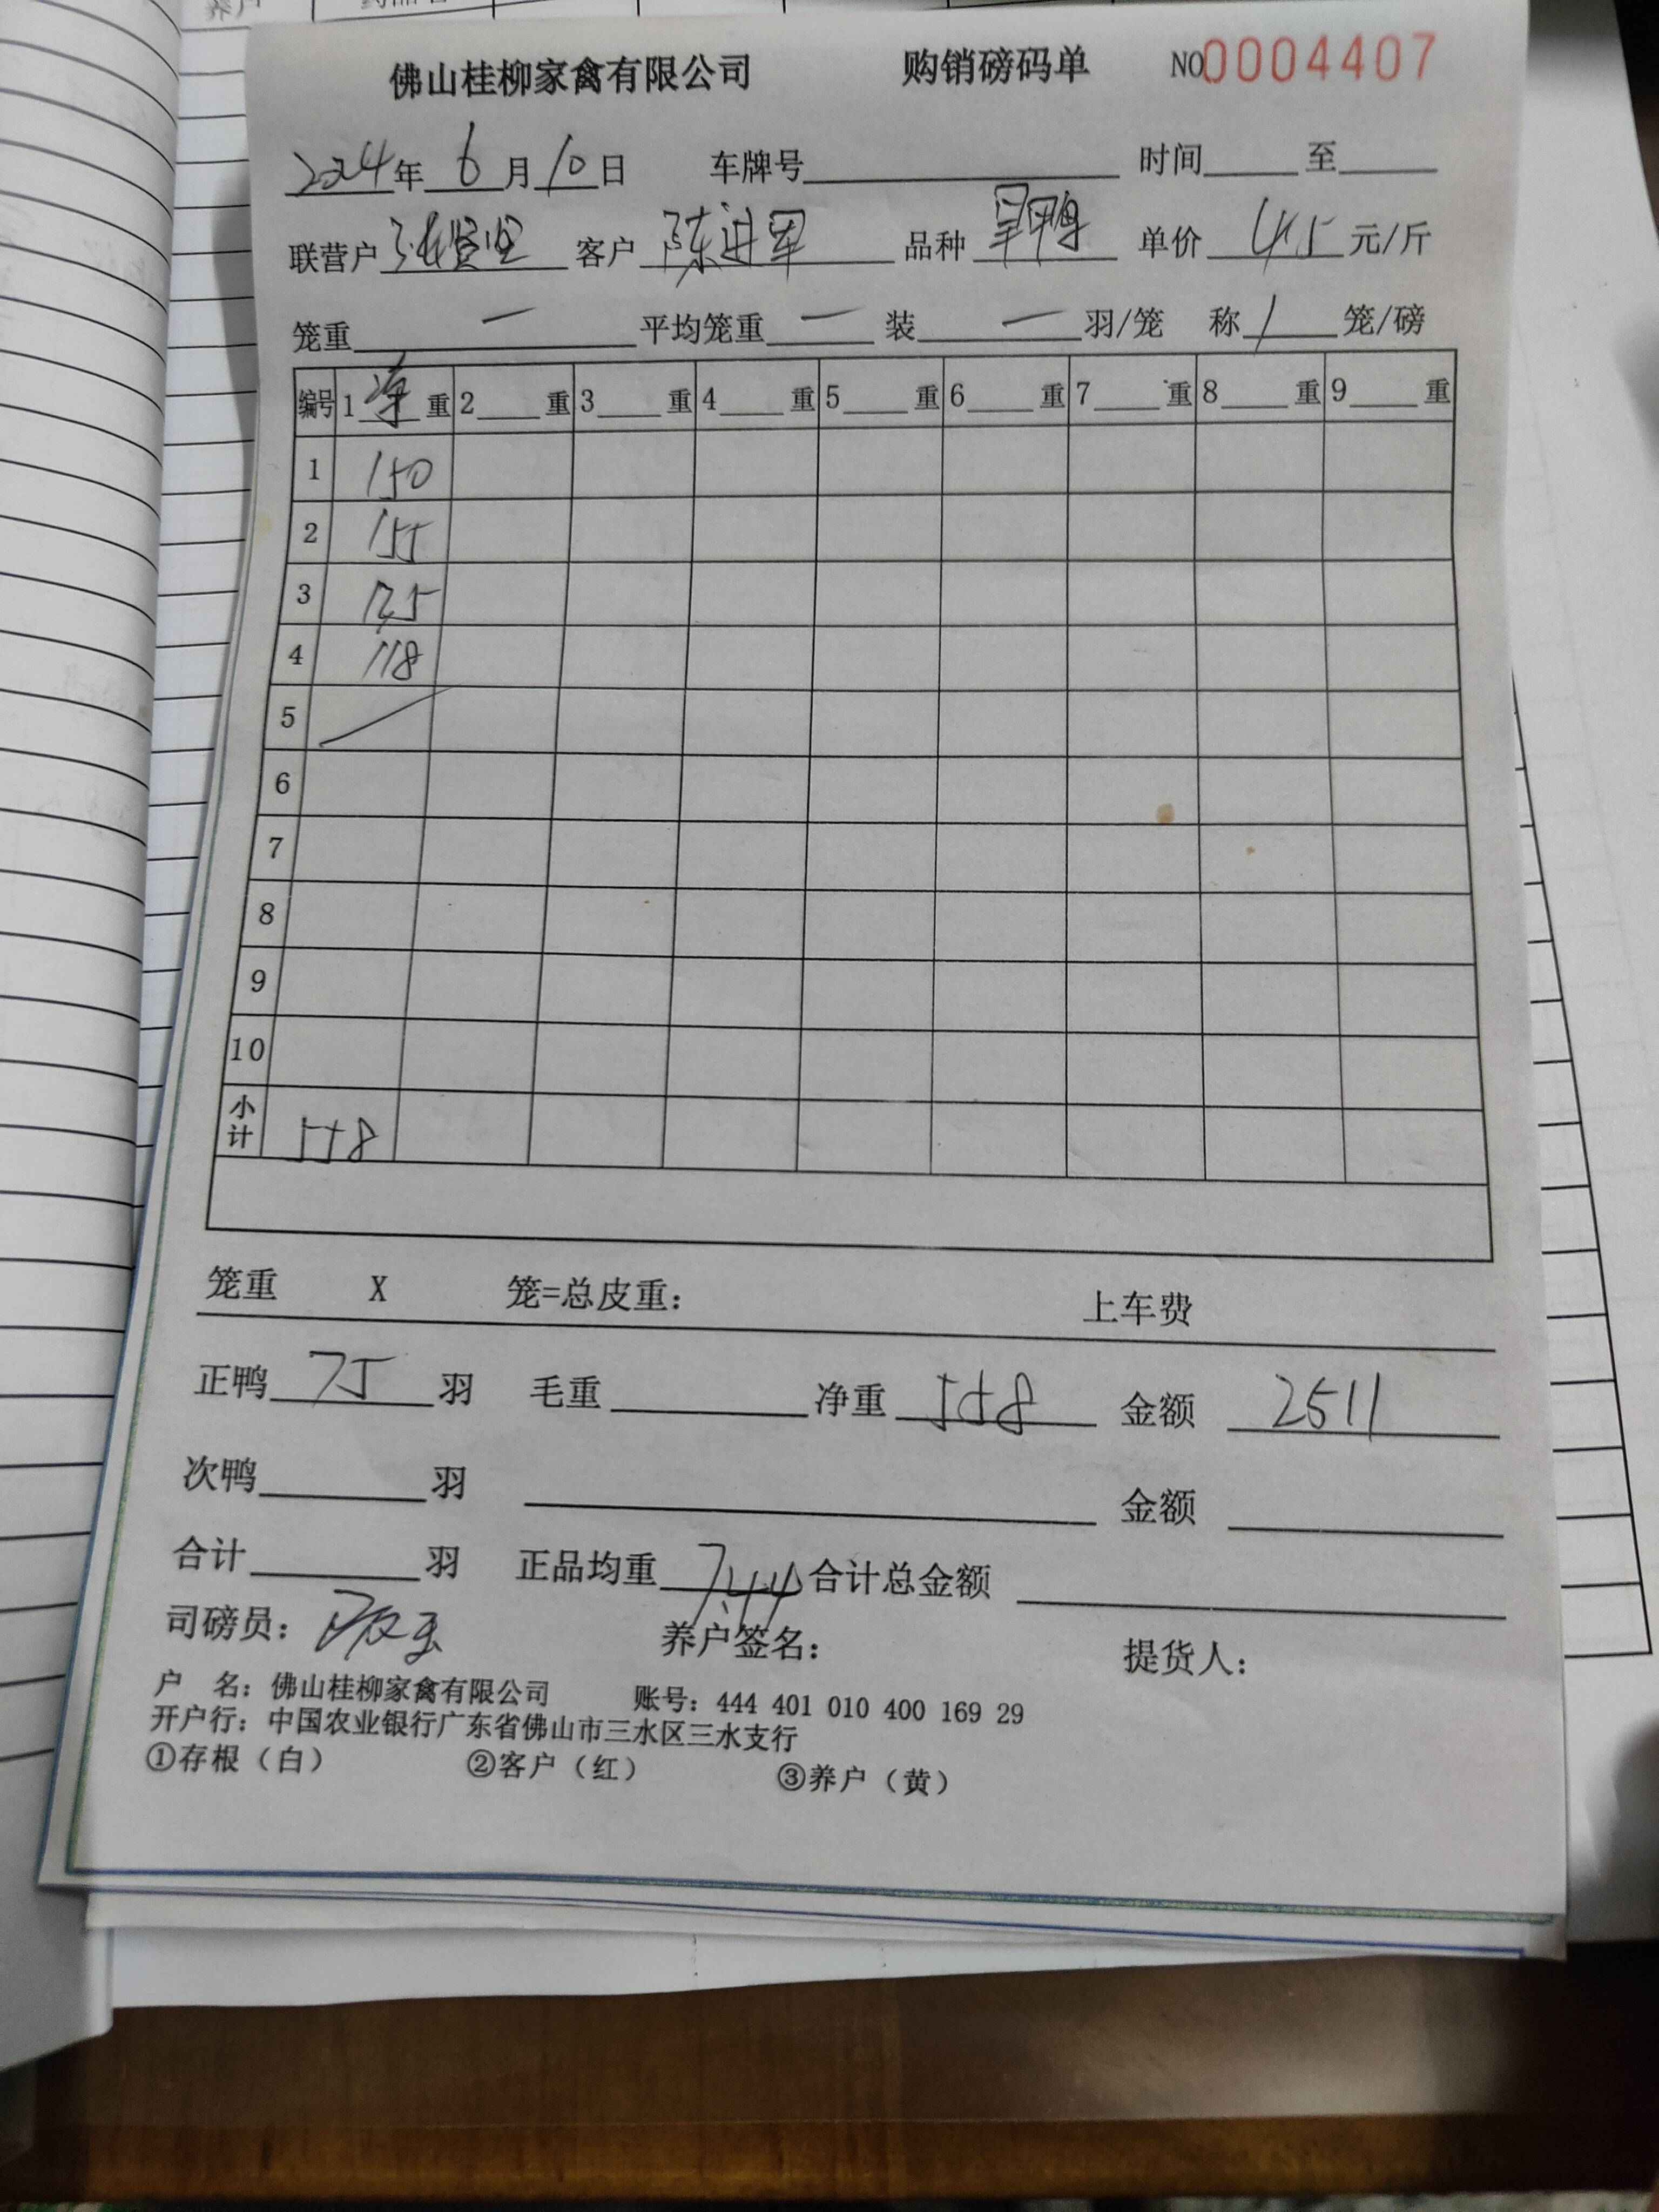 佛山桂柳家禽有限公司 购销磅码单 NO0004407
2024年6月10日 车牌号 时间 至
联营户 张贤坚 客户 陈进军 品种 旱鸭 单价 4.5 元/斤
笼重 一 平均笼重 一 装 一 羽/笼 称 1 笼/磅
编号 1 净 重 2 重 3 重 4 重 5 重 6 重 7 重 8 重 9 重
1 150
2 155
3 135
4 118
5
6
7
8
9
10
小计 558
笼重 X 笼=总皮重: 上车费
正鸭 75 羽 毛重 净重 558 金额 2511
次鸭 羽 金额
合计 羽 正品均重 7.44 合计总金额
司磅员: 养户签名: 提货人:
户 名: 佛山桂柳家禽有限公司 账号: 444 401 010 400 169 29
开户行: 中国农业银行广东省佛山市三水区三水支行
①存根（白） ②客户（红） ③养户（黄）